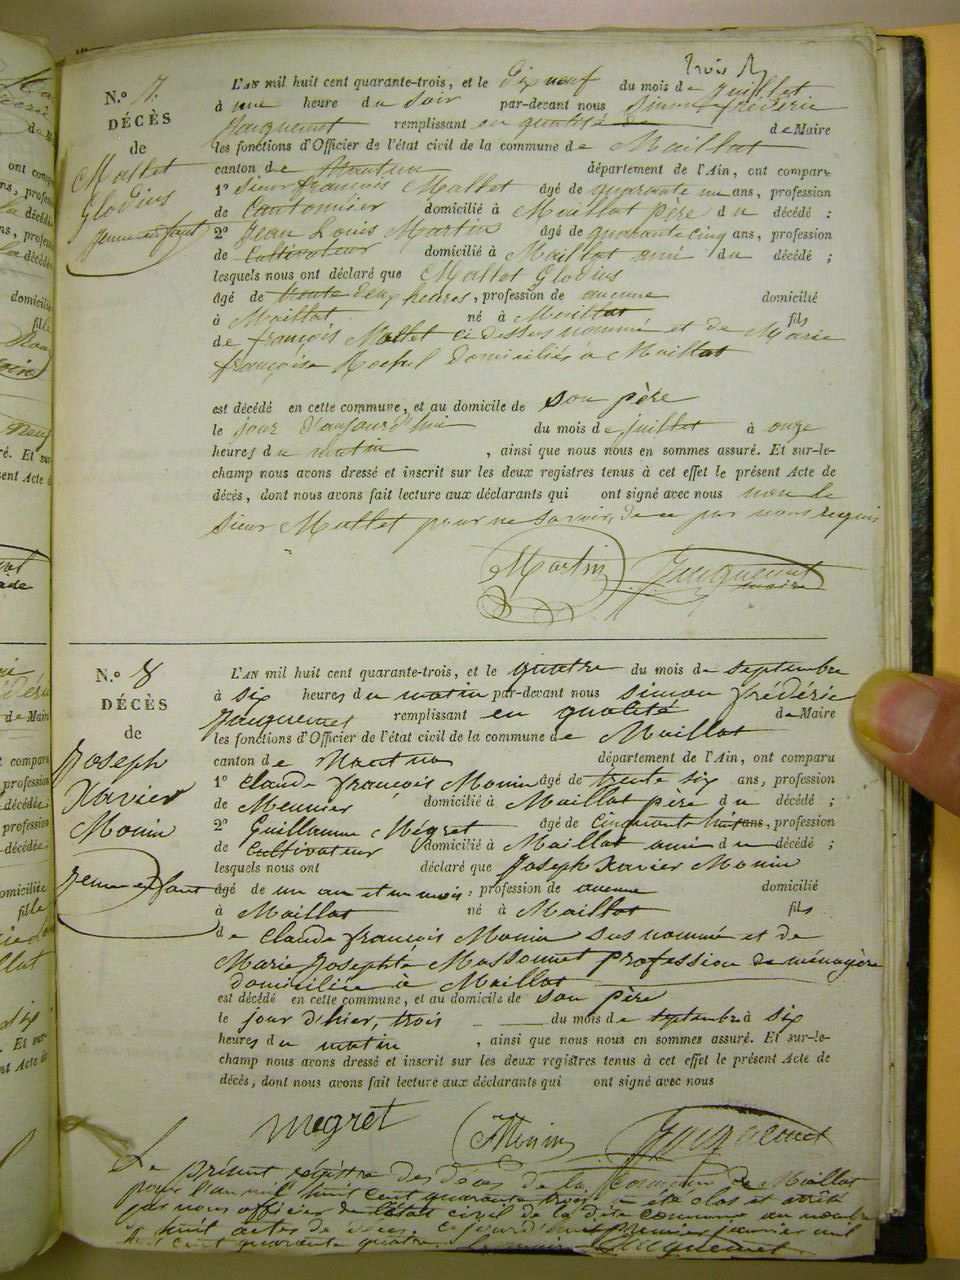 N.º 7.
DÉCÈS
de
Mallet
Glodius
jeune enfant
L'AN mil huit cent quarante-trois, et le Dix neuf du mois de juillet
à une heure du soir par-devant nous Simon frédéric
Jacquemet remplissant en qualité de de Maire
les fonctions d'Officier de l'état civil de la commune de Maillat
canton de Nantua département de l'Ain, ont comparu
1º Sieur françois Mallet âgé de quarante un ans, profession
de Cantonnier domicilié à Maillat père du décédé :
2º Jean Louis Martin âgé de quarante cinq ans, profession
de Cultivateur domicilié à Maillat ami du décédé ;
lesquels nous ont déclaré que Mallet Glodius
âgé de trente deux heures, profession de aucune domicilié
à Maillat né à Maillat fils
de françois Mallet ci dessus nommé et de Marie
françoise domiciliés à Maillat
est décédé en cette commune, et au domicile de son père
le jour d'aujourd'hui du mois de juillet à onze
heures du matin , ainsi que nous nous en sommes assuré. Et sur-le-
champ nous avons dressé et inscrit sur les deux registres tenus à cet effet le présent Acte de
décès, dont nous avons fait lecture aux déclarants qui ont signé avec nous non le
sieur Mallet pour ne savoir, de ce par nous requis
Martin Jacquemet
maire
N.º 8
DÉCÈS
de
Joseph
Xavier
Monin
jeune enfant
L'AN mil huit cent quarante-trois, et le quatre du mois de septembre
à six heures du matin par-devant nous simon frédéric
Jacquemet remplissant en qualité de Maire
les fonctions d'Officier de l'état civil de la commune de Maillat
canton de Nantua département de l'Ain, ont comparu
1º Claude françois Monin âgé de trente six ans, profession
de Meunier domicilié à Maillat père du décédé ;
2º Guillaume Mégret âgé de Cinquante huit ans, profession
de Cultivateur domicilié à Maillat ami du décédé ;
lesquels nous ont déclaré que Joseph Xavier Monin
âgé de un an et un mois, profession de aucune domicilié
à Maillat né à Maillat fils
de Claude françois Monin sus nommé et de
Marie Josephte Massonnet profession de ménagère
domiciliée à Maillat
est décédé en cette commune, et au domicile de son père
le jour d'hier, trois du mois de septembre à six
heures du matin , ainsi que nous nous en sommes assuré. Et sur-le-
champ nous avons dressé et inscrit sur les deux registres tenus à cet effet le présent Acte de
décès, dont nous avons fait lecture aux déclarants qui ont signé avec nous
megret Monin Jacquemet
Le présent régistre des décès de la Commune de Maillat
pour l'an mil huit cent quarante trois a été clos et arrêté
par nous officier de l'état civil de la dite commune au nombre
de huit actes de décès, ce jourd'hui premier janvier mil
huit cent quarante quatre. Le maire Jacquemet